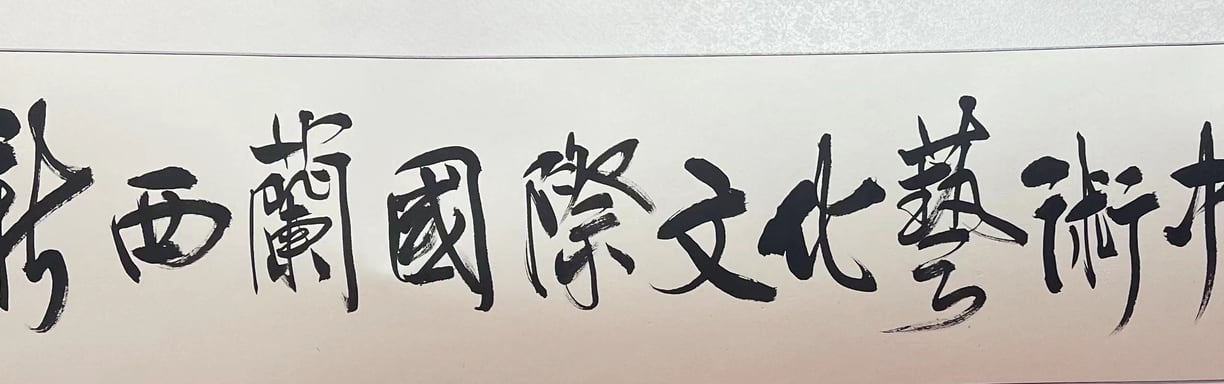 新西蘭國際文化藝術